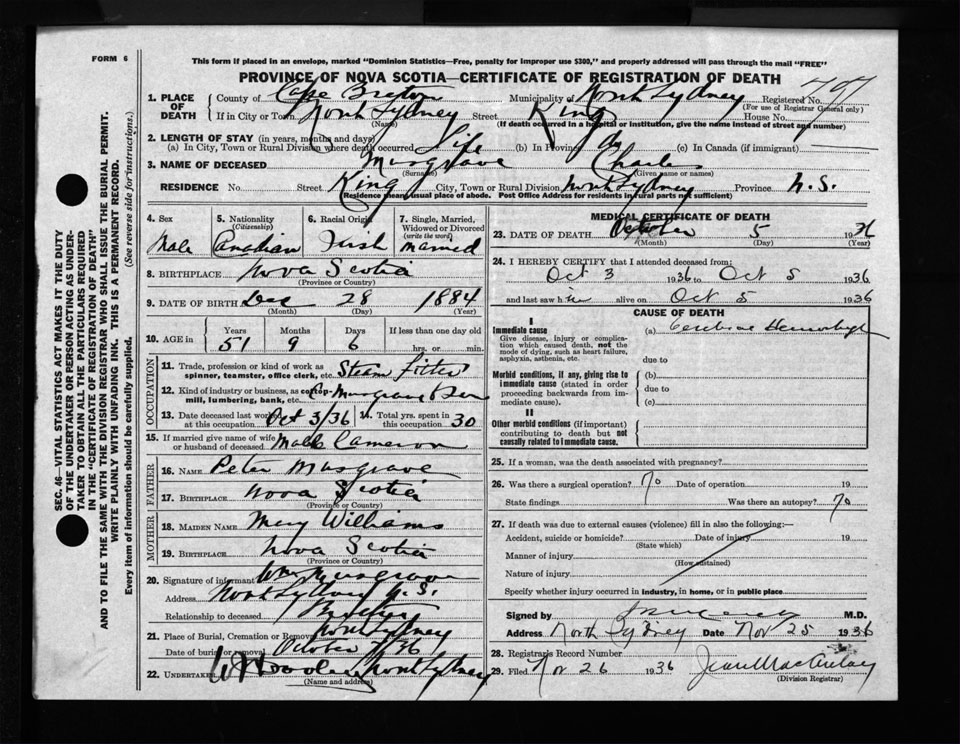 FORM 6
This form if placed in an envelope, marked "Dominion Statistics—Free, penalty for improper use $300," and properly addressed will pass through the mail "FREE"
PROVINCE OF NOVA SCOTIA—CERTIFICATE OF REGISTRATION OF DEATH
1. PLACE OF DEATH County of Cape Breton Municipality of North Sydney Registered No. 797
(For use of Registrar General only)
If in City or Town North Sydney Street King House No.
(Name) (If death occurred in a hospital or institution, give the name instead of street and number)
2. LENGTH OF STAY (in years, months and days)
(a) In City, Town or Rural Division where death occurred Life (b) In Province do (c) In Canada (if immigrant)
3. NAME OF DECEASED Musgrave Charles
(Surname) (Given name or names)
RESIDENCE No. Street King City, Town or Rural Division North Sydney Province N.S.
(Residence means usual place of abode. Post Office Address for residents in rural parts not sufficient)
4. Sex Male
5. Nationality (Citizenship) Canadian
6. Racial Origin Irish
7. Single, Married, Widowed or Divorced (write the word) Married
8. BIRTHPLACE Nova Scotia
(Province or Country)
9. DATE OF BIRTH Dec 28 1884
(Month) (Day) (Year)
10. AGE in Years 51 Months 9 Days 6 If less than one day old hrs. or min.
OCCUPATION
11. Trade, profession or kind of work as spinner, teamster, office clerk, etc. Steam fitter
12. Kind of industry or business, as cotton mill, lumbering, bank, etc. Musgrave
13. Date deceased last worked at this occupation Oct 3/36 14. Total yrs. spent in this occupation 30
15. If married give name of wife or husband of deceased Cameron
FATHER
16. NAME Peter Musgrave
17. BIRTHPLACE Nova Scotia
(Province or Country)
MOTHER
18. MAIDEN NAME Mary Williams
19. BIRTHPLACE Nova Scotia
(Province or Country)
20. Signature of informant Wm Musgrave
Address North Sydney N.S.
Relationship to deceased Brother
21. Place of Burial, Cremation or Removal North Sydney
Date of burial or removal October 36
22. UNDERTAKER North Sydney
(Name and address)
MEDICAL CERTIFICATE OF DEATH
23. DATE OF DEATH October 5 1936
(Month) (Day) (Year)
24. I HEREBY CERTIFY that I attended deceased from:
Oct 3 1936 to Oct 5 1936
and last saw him alive on Oct 5 1936
CAUSE OF DEATH
I
Immediate cause (a) Cerebral Hemorrhage
Give disease, injury or complication which caused death, not the mode of dying, such as heart failure, asphyxia, asthenia, etc.
due to
Morbid conditions, if any, giving rise to immediate cause (stated in order proceeding backwards from immediate cause).
(b)
due to
(c)
II
Other morbid conditions (if important) contributing to death but not causally related to immediate cause.
25. If a woman, was the death associated with pregnancy?
26. Was there a surgical operation? No Date of operation 19
State findings Was there an autopsy? No
27. If death was due to external causes (violence) fill in also the following:—
Accident, suicide or homicide? Date of injury 19
(State which)
Manner of injury
(How sustained)
Nature of injury
Specify whether injury occurred in industry, in home, or in public place
Signed by M.D.
Address North Sydney Date Nov 25 1936
28. Registrar's Record Number
29. Filed Nov 26 1936 Jean MacAulay
(Division Registrar)
SEC. 46—VITAL STATISTICS ACT MAKES IT THE DUTY
OF THE UNDERTAKER OR PERSON ACTING AS UNDERTAKER
TO OBTAIN ALL THE PARTICULARS REQUIRED
IN THE "CERTIFICATE OF REGISTRATION OF DEATH"
AND TO FILE THE SAME WITH THE DIVISION REGISTRAR WHO SHALL ISSUE THE BURIAL PERMIT.
WRITE PLAINLY WITH UNFADING INK. THIS IS A PERMANENT RECORD.
Every item of information should be carefully supplied. (See reverse side for instructions.)